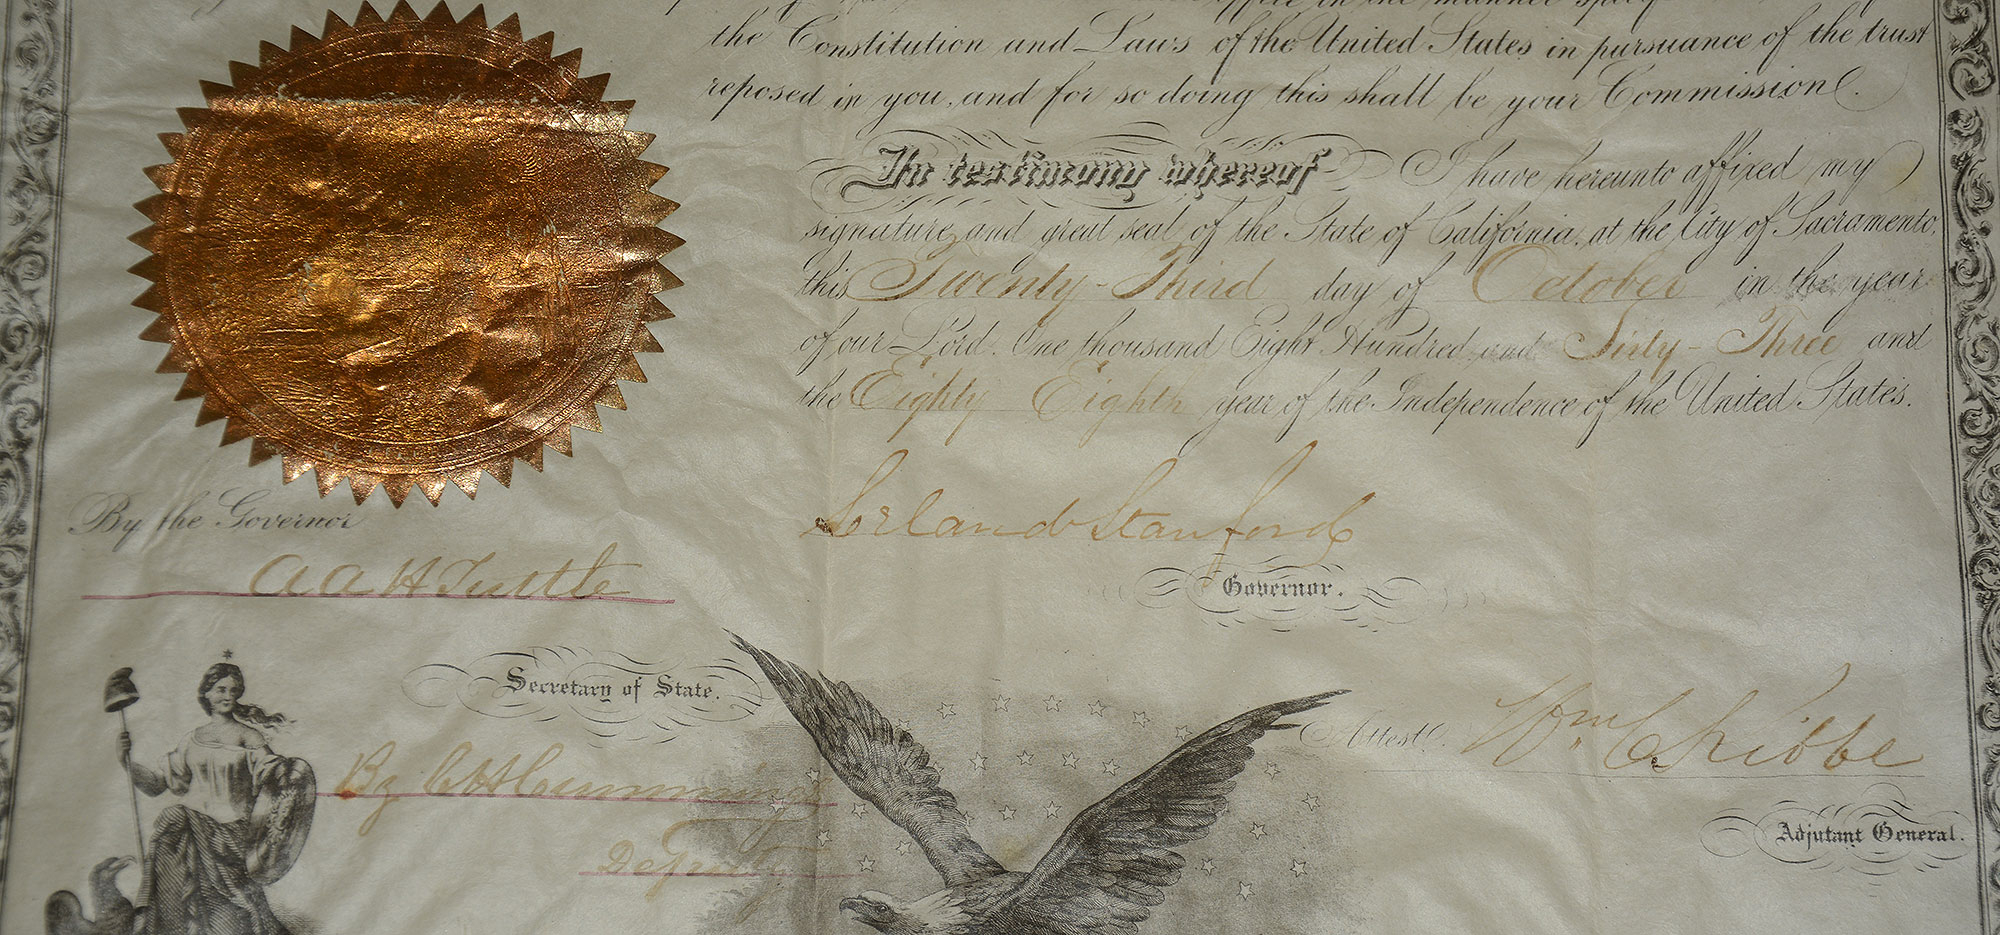 office in the manner
the Constitution and Laws of the United States in pursuance of the trust
reposed in you, and for so doing this shall be your Commission.
In testimony whereof I have hereunto affixed my
signature, and great seal of the State of California, at the City of Sacramento,
this Twenty-Third day of October in the year
of our Lord. One thousand Eight Hundred and Sixty-Three and
the Eighty Eighth year of the Independence of the United States.
Leland Stanford
Governor.
By the Governor
A A H Tuttle
Secretary of State.
By A H Cummings
Deputy
Attest. Wm C Kibbe
Adjutant General.